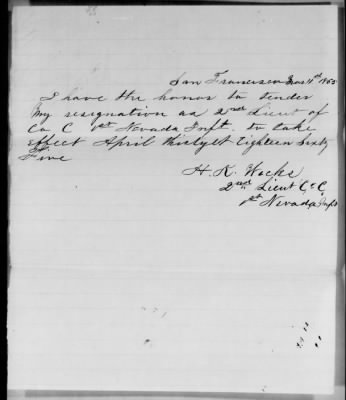 San Francisco 1st 1865
I have the honor to tender
My resignation as 2nd Lieut of
Co C 1st Nevada Inft. to take
effect April thirtyst Eighteen Sixty
Five
H. K.
2nd Lieut Co C
1st Nevada Inft